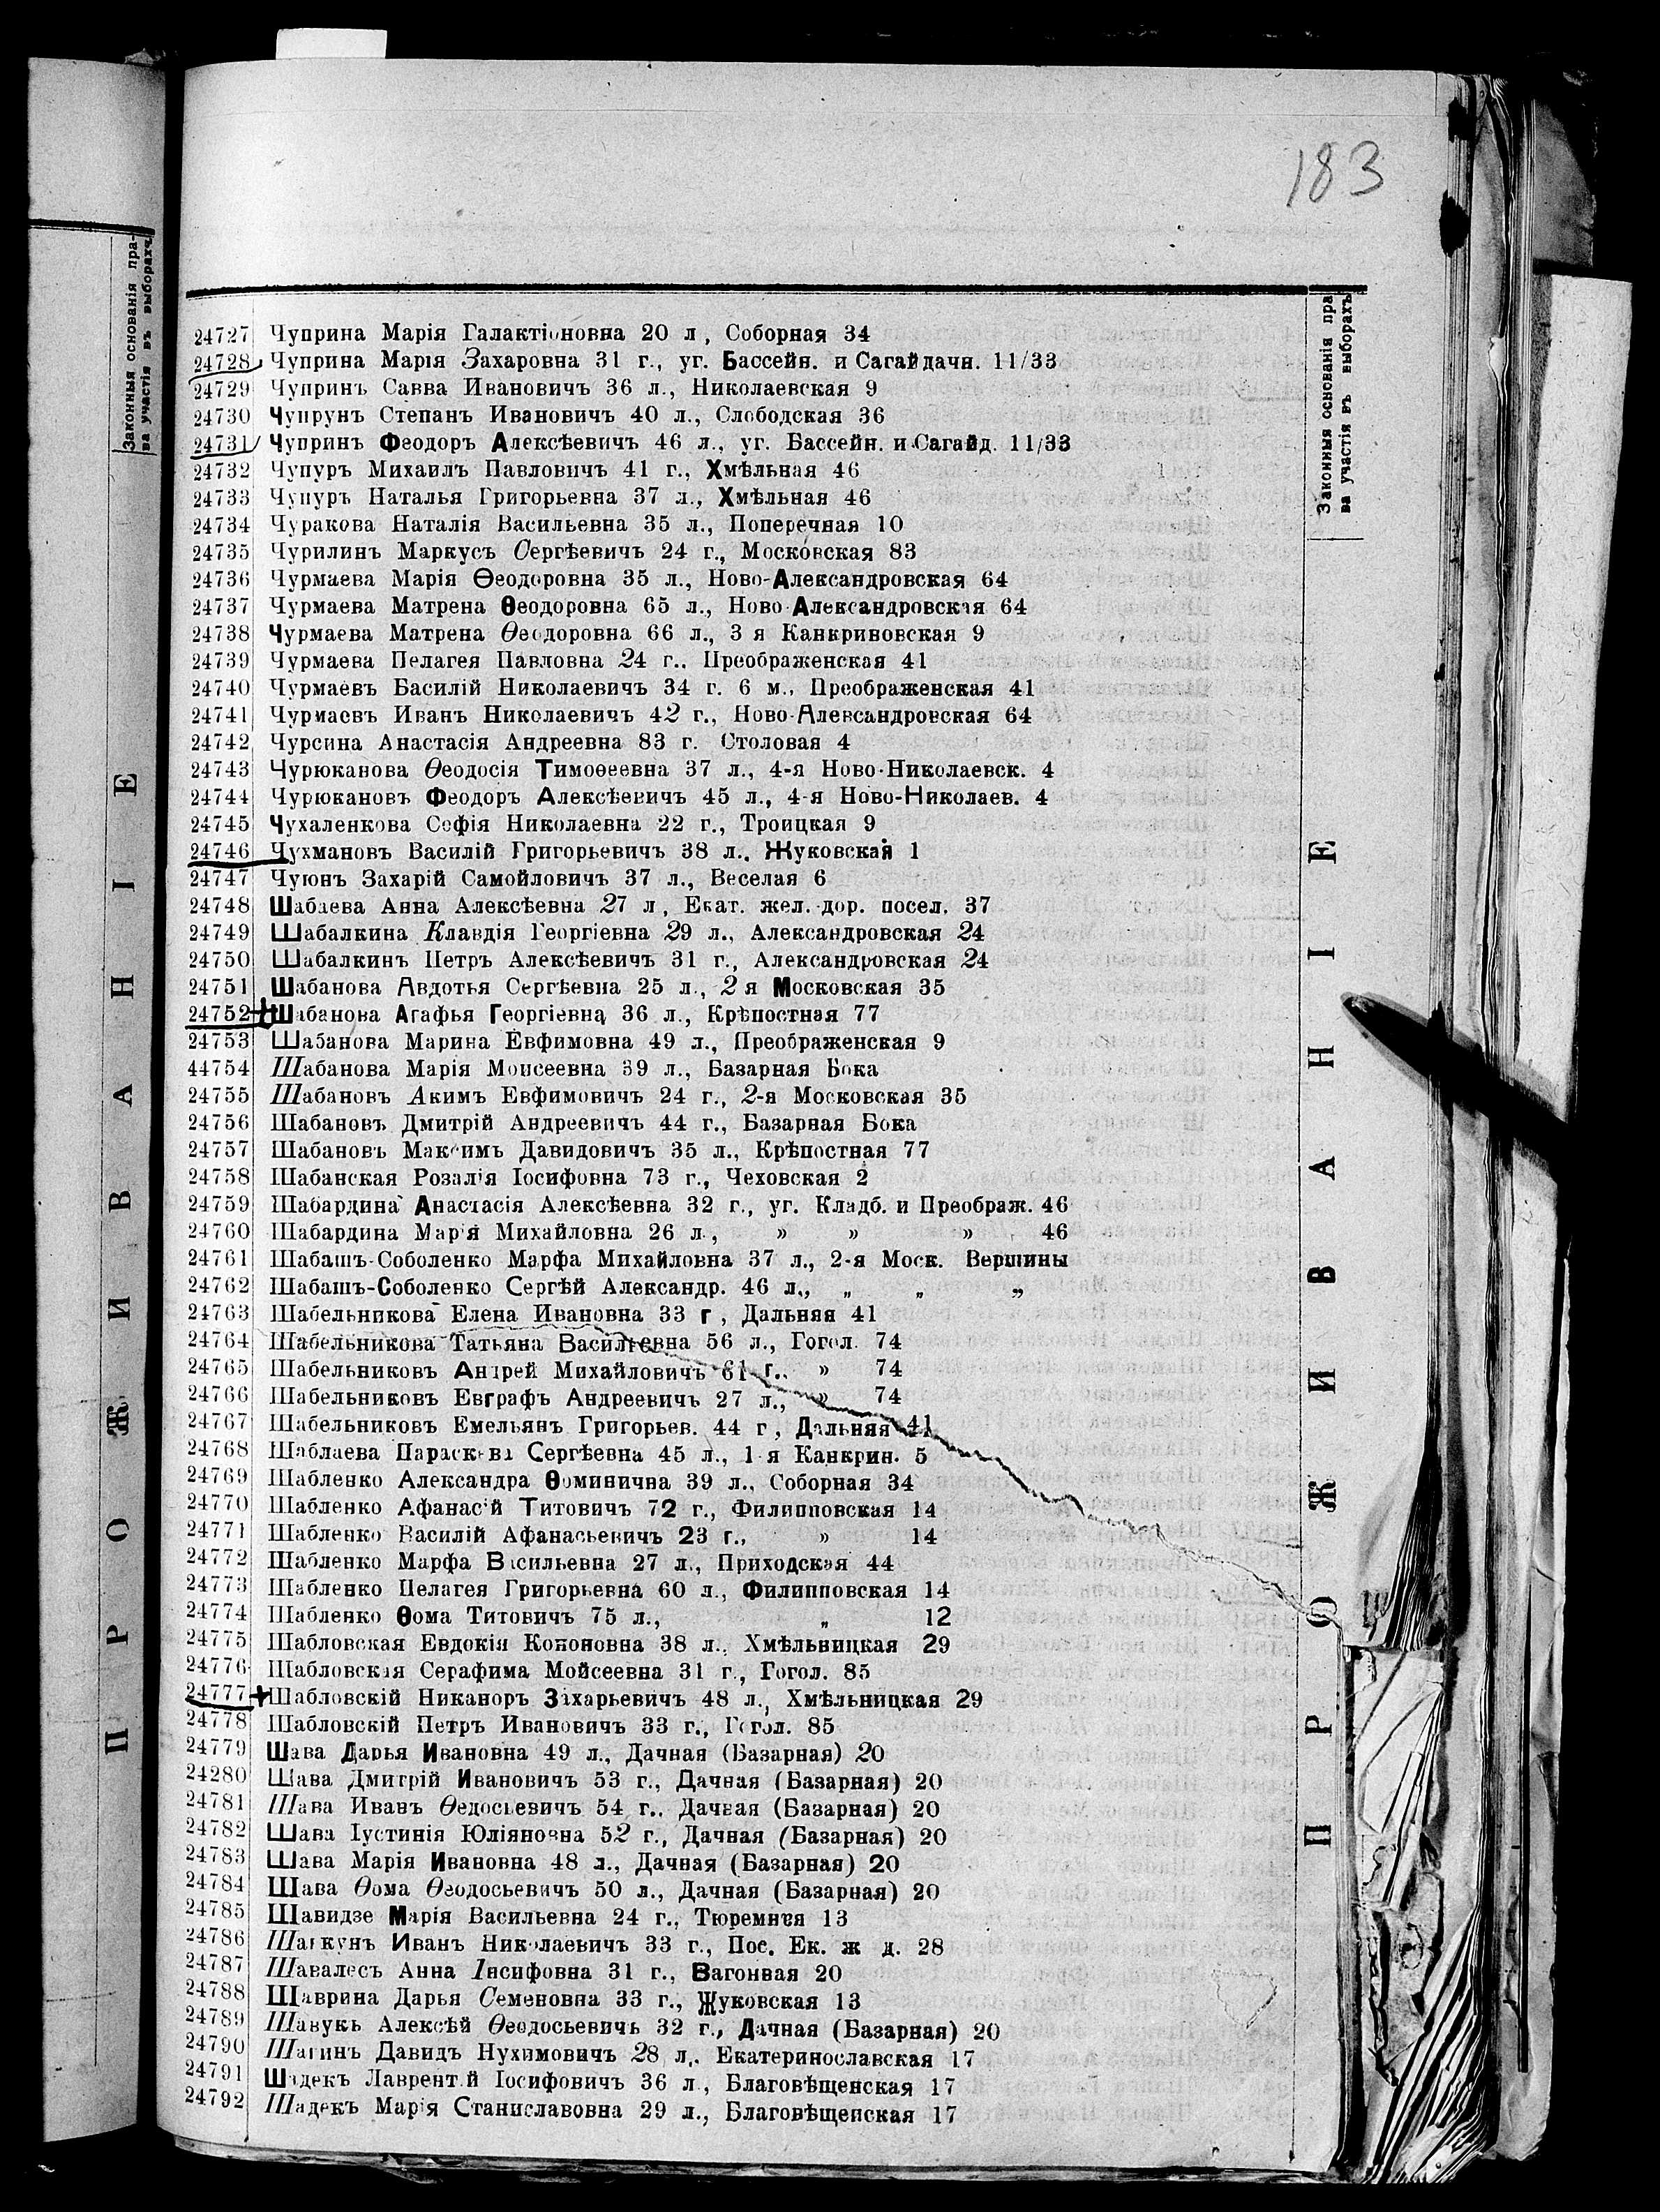 183
Законныя основанія пра-
ва участія въ выборахъ
ПРОЖИВАНІЕ
Законныя основанія пра
ва участія въ выборахъ
ПРОЖИВАНІЕ
24727 Чуприна Марія Галактіоновна 20 л, Соборная 34
24728 Чуприна Марія Захаровна 31 г., уг. Бассейн. и Сагайдачн. 11/33
24729 Чупринъ Савва Ивановичъ 36 л., Николаевская 9
24730 Чупрунъ Степанъ Ивановичъ 40 л., Слободская 36
24731 Чупринъ Феодоръ Алексѣевичъ 46 л., уг. Бассейн. и Сагайд. 11/33
24732 Чупуръ Михаилъ Павловичъ 41 г., Хмѣльная 46
24733 Чупуръ Наталья Григорьевна 37 л., Хмѣльная 46
24734 Чуракова Наталія Васильевна 35 л., Поперечная 10
24735 Чурилинъ Маркусъ Сергѣевичъ 24 г., Московская 83
24736 Чурмаева Марія Ѳеодоровна 35 л., Ново-Александровская 64
24737 Чурмаева Матрена Ѳеодоровна 65 л., Ново-Александровская 64
24738 Чурмаева Матрена Ѳеодоровна 66 л., 3 я Канкриновская 9
24739 Чурмаева Пелагея Павловна 24 г.. Преображенская 41
24740 Чурмаевъ Василій Николаевичъ 34 г. 6 м., Преображенская 41
24741 Чурмаевъ Иванъ Николаевичъ 42 г., Ново-Александровская 64
24742 Чурсина Анастасія Андреевна 83 г. Столовая 4
24743 Чурюканова Ѳеодосія Тимоѳеевна 37 л., 4-я Ново-Николаевск. 4
24744 Чурюкановъ Феодоръ Алексѣевичъ 45 л., 4-я Ново-Николаев. 4
24745 Чухаленкова Софія Николаевна 22 г., Троицкая 9
24746 Чухмановъ Василій Григорьевичъ 38 л., Жуковская 1
24747 Чуюнъ Захарій Самойловичъ 37 л., Веселая 6
24748 Шабаева Анна Алексѣевна 27 л, Екат. жел. дор. посел. 37
24749 Шабалкина Клавдія Георгіевна 29 л., Александровская 24
24750 Шабалкинъ Петръ Алексѣевичъ 31 г., Александровская 24
24751 Шабанова Авдотья Сергѣевна 25 л., 2 я Московская 35
24752 + Шабанова Агафья Георгіевна 36 л., Крѣпостная 77
24753 Шабанова Марина Евфимовна 49 л., Преображенская 9
44754 Шабанова Марія Моисеевна 39 л., Базарная Бока
24755 Шабановъ Акимъ Евфимовичъ 24 г., 2-я Московская 35
24756 Шабановъ Дмитрій Андреевичъ 44 г., Базарная Бока
24757 Шабановъ Максимъ Давидовичъ 35 л., Крѣпостная 77
24758 Шабанская Розалія Іосифовна 73 г., Чеховская 2
24759 Шабардина Анастасія Алексѣевна 32 г., уг. Кладб. и Преображ. 46
24760 Шабардина Марія Михайловна 26 л., » » » 46
24761 Шабашъ-Соболенко Марфа Михайловна 37 л., 2-я Моск. Вершины
24762 Шабашъ-Соболенко Сергѣй Александр. 46 л., „ „ „
24763 Шабельникова Елена Ивановна 33 г, Дальняя 41
24764 Шабельникова Татьяна Васильевна 56 л., Гогол. 74
24765 Шабельниковъ Андрей Михайловичъ 61 г., » 74
24766 Шабельниковъ Евграфъ Андреевичъ 27 л., » 74
24767 Шабельниковъ Емельянъ Григорьев. 44 г, Дальняя 41
24768 Шаблаева Параскева Сергѣевна 45 л., 1-я Канкрин. 5
24769 Шабленко Александра Ѳоминична 39 л., Соборная 34
24770 Шабленко Афанасій Титовичъ 72 г., Филипповская 14
24771 Шабленко Василій Афанасьевичъ 23 г., » 14
24772 Шабленко Марфа Васильевна 27 л., Приходская 44
24773 Шабленко Пелагея Григорьевна 60 л., Филипповская 14
24774 Шабленко Ѳома Титовичъ 75 л., „ 12
24775 Шабловская Евдокія Кононовна 38 л., Хмѣльницкая 29
24776 Шабловская Серафима Мойсеевна 31 г., Гогол. 85
24777 + Шабловскій Никаноръ Захарьевичъ 48 л., Хмѣльницкая 29
24778 Шабловскій Петръ Ивановичъ 33 г., Гогол. 85
24779 Шава Дарья Ивановна 49 л., Дачная (Базарная) 20
24280 Шава Дмитрій Ивановичъ 53 г., Дачная (Базарная) 20
24781 Шава Иванъ Ѳедосьевичъ 54 г., Дачная (Базарная) 20
24782 Шава Іустинія Юліяновна 52 г., Дачная (Базарная) 20
24783 Шава Марія Ивановна 48 л., Дачная (Базарная) 20
24784 Шава Ѳома Ѳеодосьевичъ 50 л., Дачная (Базарная) 20
24785 Шавидзе Марія Васильевна 24 г., Тюремная 13
24786 Иванъ Николаевичъ 33 г., Пос. Ек. ж д. 28
24787 Шавалесъ Анна Іосифовна 31 г., Вагонная 20
24788 Шаврина Дарья Семеновна 33 г., Жуковская 13
24789 Шавукъ Алексѣй Ѳеодосьевичъ 32 г., Дачная (Базарная) 20
24790 Шагинъ Давидъ Нухимовичъ 28 л., Екатеринославская 17
24791 Шадекъ Лаврентій Іосифовичъ 36 л., Благовѣщенская 17
24792 Шадекъ Марія Станиславовна 29 л., Благовѣщенская 17